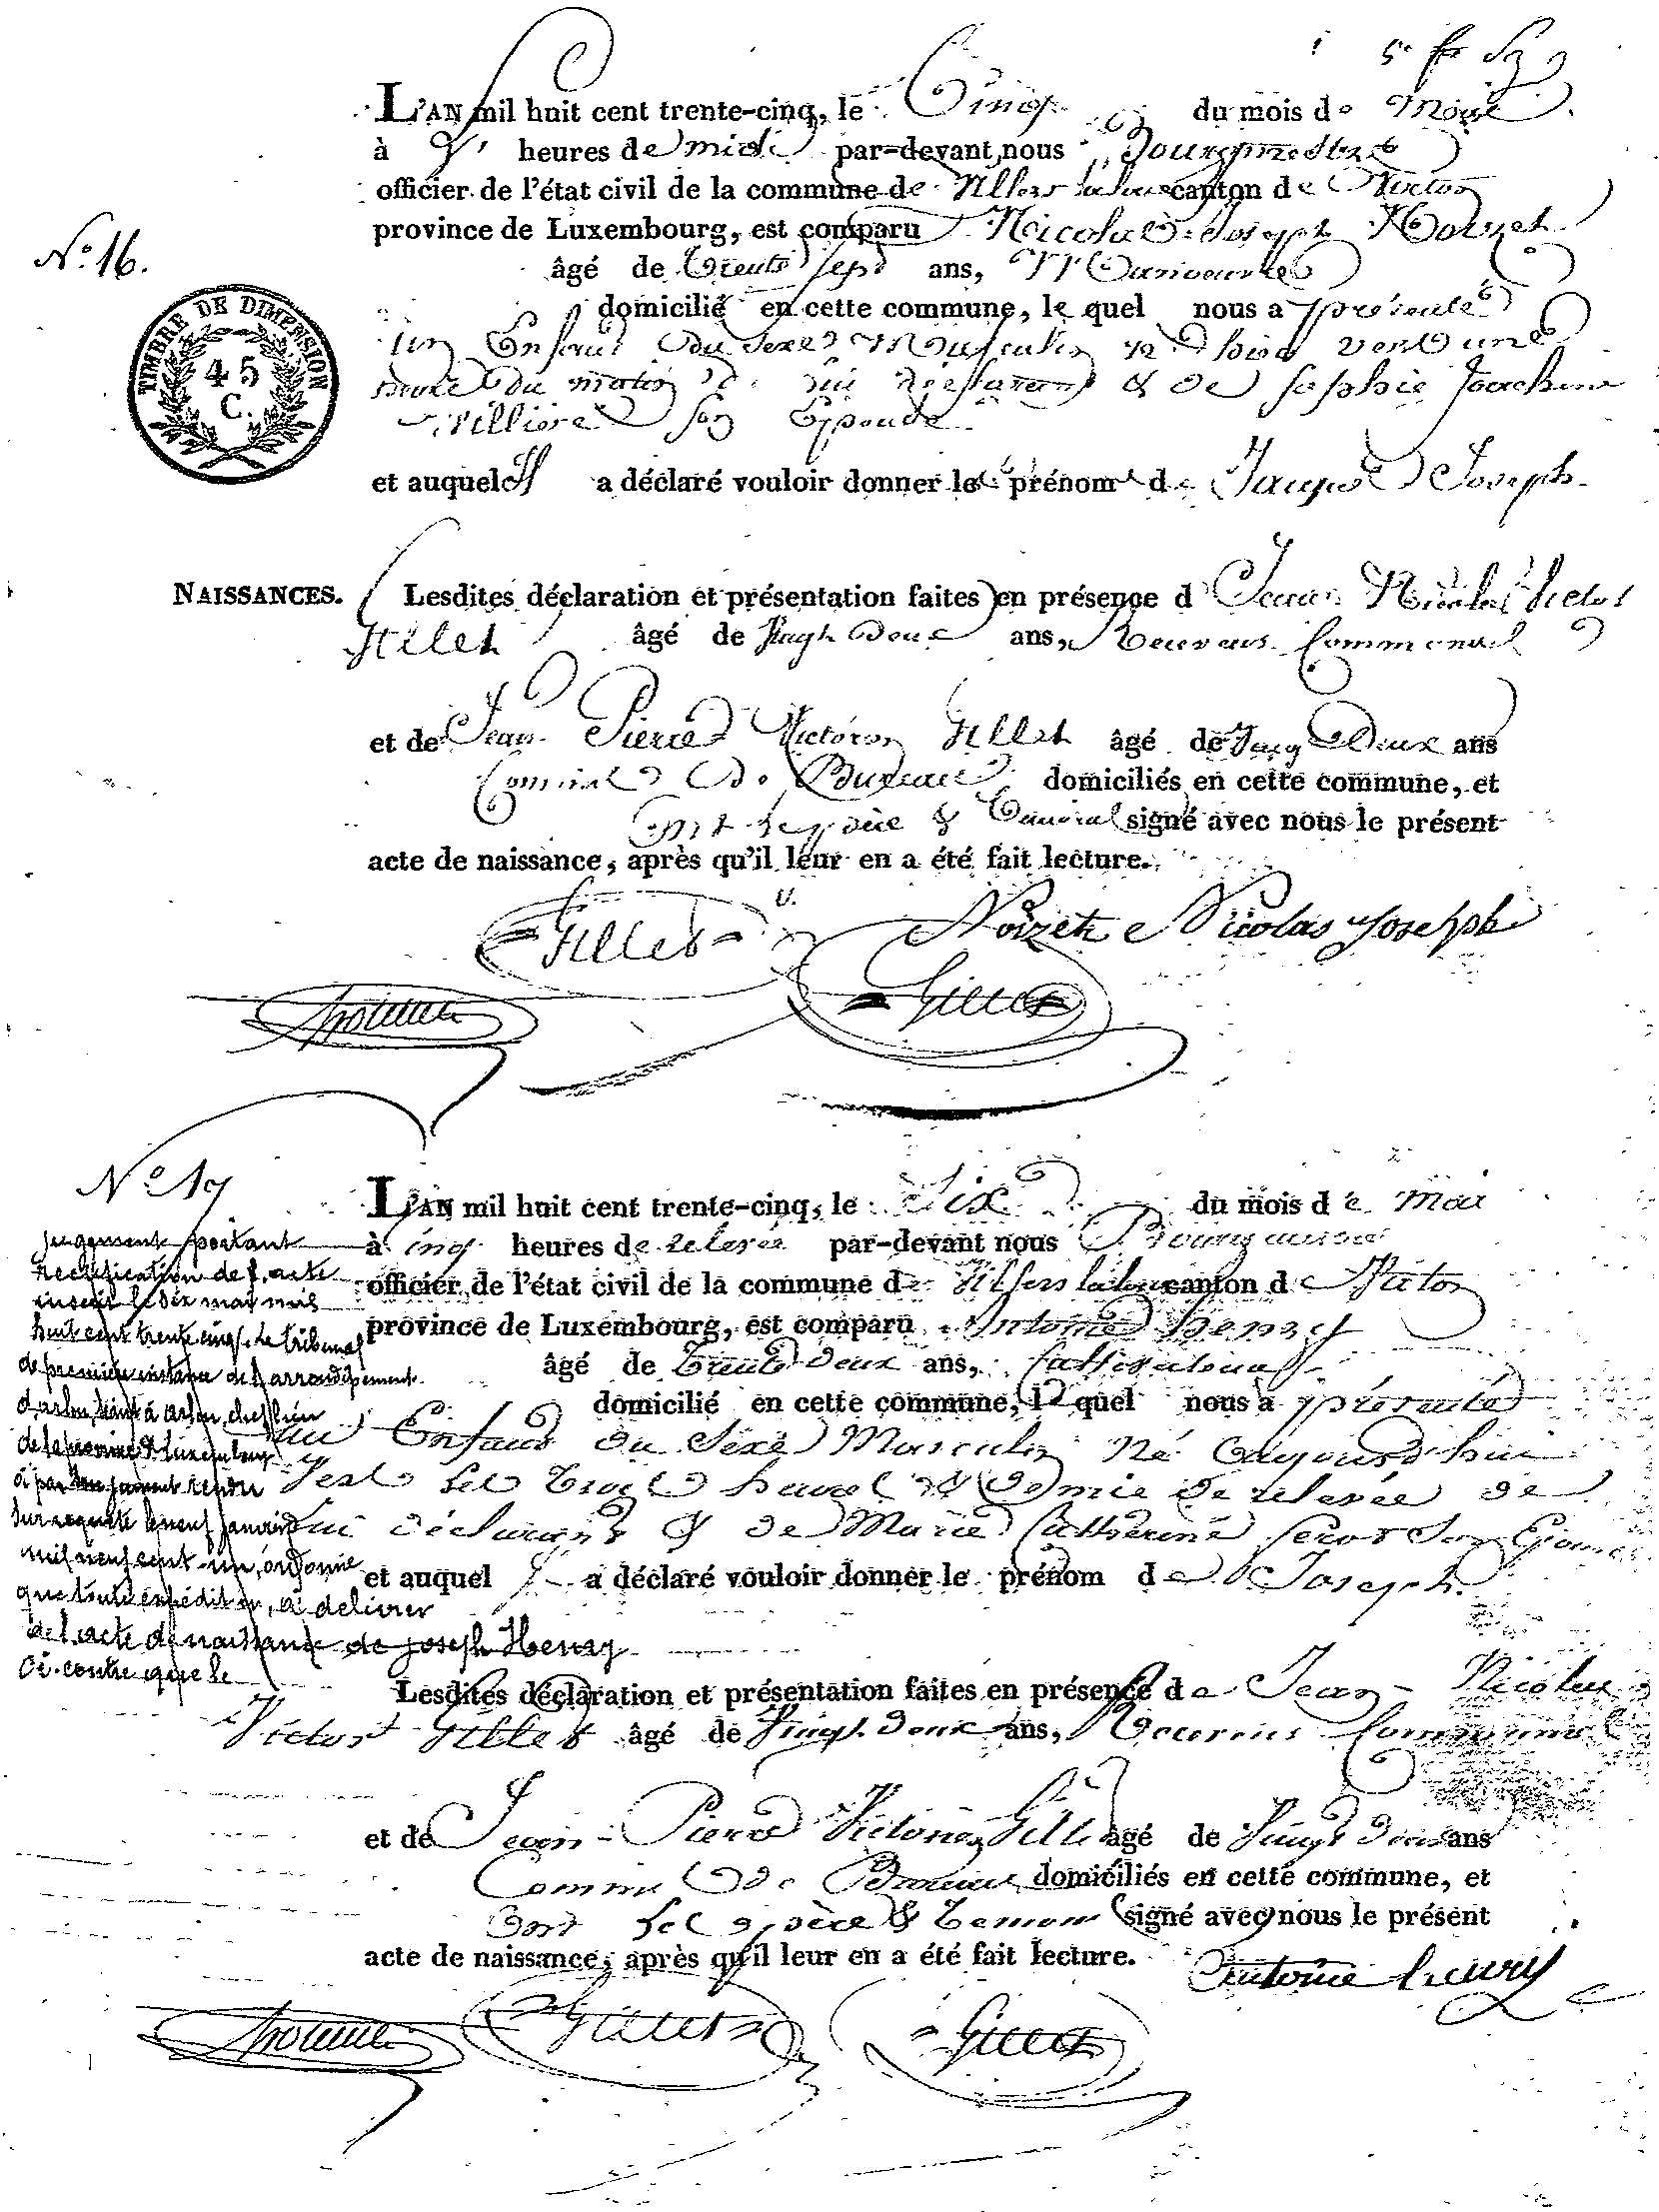 L'AN mil huit cent trente-cinq, le Cinq du mois de Mai
à heures de midi par-devant nous Bourgmestre
officier de l'état civil de la commune de Villers la loue canton de Virton
province de Luxembourg, est comparu Nicolas Joseph Noizet
N.º 16.
âgé de trente sept ans, Manoeuvre
domicilié en cette commune, le quel nous a présenté
TIMBRE DE DIMENSION
45
C.
un Enfant du sexe Masculin né hier vers une
heure du matin de lui déclarant & de Sophie Joachim
son Epouse
et auquel il a déclaré vouloir donner les prénoms de Jacques Joseph
NAISSANCES.
Lesdites déclaration et présentation faites en présence de Jean Nicolas Victor
Gillet âgé de Vingt Deux ans, Receveur Communal
et de Jean Pierre Victoron Gillet âgé de Vingt Deux ans
Commis de Bureau domiciliés en cette commune, et
ont les père & témoins signé avec nous le présent
acte de naissance, après qu'il leur en a été fait lecture.
Gillet Noizet Nicolas Joseph
Gillet
N.º 17
L'AN mil huit cent trente-cinq, le Six du mois de Mai
à cinq heures de relevée par-devant nous Bourgmestre
officier de l'état civil de la commune de Villers la loue canton de Virton
province de Luxembourg, est comparu Antoine Henry
âgé de trente deux ans, Cultivateur
domicilié en cette commune, le quel nous a présenté
un Enfant du Sexe Masculin Né aujourd'hui
vers les trois heures & demie de relevée de
lui déclarant & de Marie Catherine son Epouse
et auquel il a déclaré vouloir donner le prénom de Joseph
jugement portant
rectification de l'acte
inscrit le six mai mil
huit cent trente cinq. Le tribunal
de première instance de l'arrondissement
d'arlon, séant à arlon, chef lieu
de la province de Luxembourg
a par son jugement rendu
sur requête le neuf janvier
mil neuf cent un, ordonné
que toute expédition, à délivrer
de l'acte de naissance de Joseph Henry
ci-contre que le
Lesdites déclaration et présentation faites en présence de Jean Nicolas
Victor Gillet âgé de Vingt deux ans, Receveur Communal
et de Jean Pierre Victoron Gillet âgé de Vingt deux ans
Commis de Bureau domiciliés en cette commune, et
ont les père & témoins signé avec nous le présent
acte de naissance, après qu'il leur en a été fait lecture.
Antoine henry
Gillet Gillet